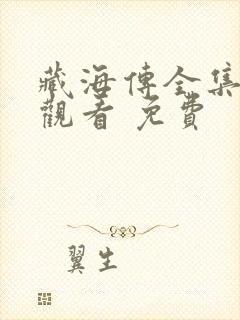 藏海傳全集
觀看 免費
翼生